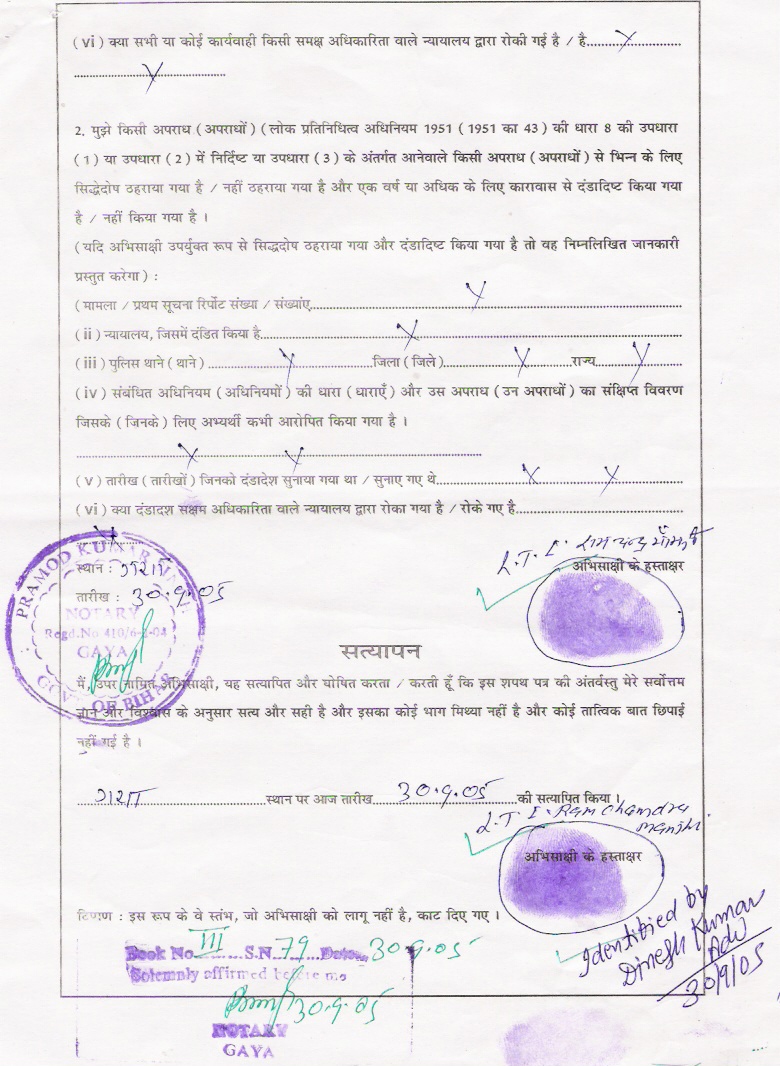 (vi) क्या सभी या कोई कार्यवाही किसी समक्ष अधिकारिता वाले न्यायालय द्वारा रोकी गई है / है.......... X ..........
.......... X ..........
2. मुझे किसी अपराध (अपराधों) (लोक प्रतिनिधित्व अधिनियम 1951 (1951 का 43) की धारा 8 की उपधारा
(1) या उपधारा (2) में निर्दिष्ट या उपधारा (3) के अंतर्गत आनेवाले किसी अपराध (अपराधों) से भिन्न के लिए
सिद्धेदोष ठहराया गया है / नहीं ठहराया गया है और एक वर्ष या अधिक के लिए कारावास से दंडादिष्ट किया गया
है / नहीं किया गया है ।
(यदि अभिसाक्षी उपर्युक्त रूप से सिद्धदोष ठहराया गया और दंडादिष्ट किया गया है तो वह निम्नलिखित जानकारी
प्रस्तुत करेगा) :
(मामला / प्रथम सूचना रिर्पोट संख्या / संख्यांए.......... X ..........
(ii) न्यायालय, जिसमें दंडित किया है.......... X ..........
(iii) पुलिस थाने (थाने) .......... X ..........जिला (जिले).......... X ..........राज्य.......... X
(iv) संबंधित अधिनियम (अधिनियमों) की धारा (धाराएँ) और उस अपराध (उन अपराधों) का संक्षिप्त विवरण
जिसके (जिनके) लिए अभ्यर्थी कभी आरोपित किया गया है ।
.......... X .......... X ..........
(v) तारीख (तारीखों) जिनको दंडादेश सुनाया गया था / सुनाए गए थे.......... X .......... X ..........
(vi) क्या दंडादश सक्षम अधिकारिता वाले न्यायालय द्वारा रोका गया है / रोके गए है..........
.......... X
L.T.I. रामचन्द्र माँझी
स्थान : गया
अभिसाक्षी के हस्ताक्षर
तारीख : 30.9.05
PRAMOD KUMAR
NOTARY
Regd.No 410/6-
GAYA
GOVT OF BIHAR
सत्यापन
मैं, उपर नामित अभिसाक्षी, यह सत्यापित और घोषित करता / करती हूँ कि इस शपथ पत्र की अंतर्वस्तु मेरे सर्वोत्तम
ज्ञान और विश्वास के अनुसार सत्य और सही है और इसका कोई भाग मिथ्या नहीं है और कोई तात्विक बात छिपाई
नहीं गई है ।
गया स्थान पर आज तारीख 30.9.05 की सत्यापित किया ।
L.T.I. Ram Chandra
Manjhi.
अभिसाक्षी के हस्ताक्षर
टिप्पण : इस रूप के वे स्तंभ, जो अभिसाक्षी को लागू नहीं है, काट दिए गए ।
Book No III S.N. 79 Date 30.9.05
Solemnly affirmed before me
30.9.05
NOTARY
GAYA
Identified by
Dinesh Kumar
Adv
30/9/05